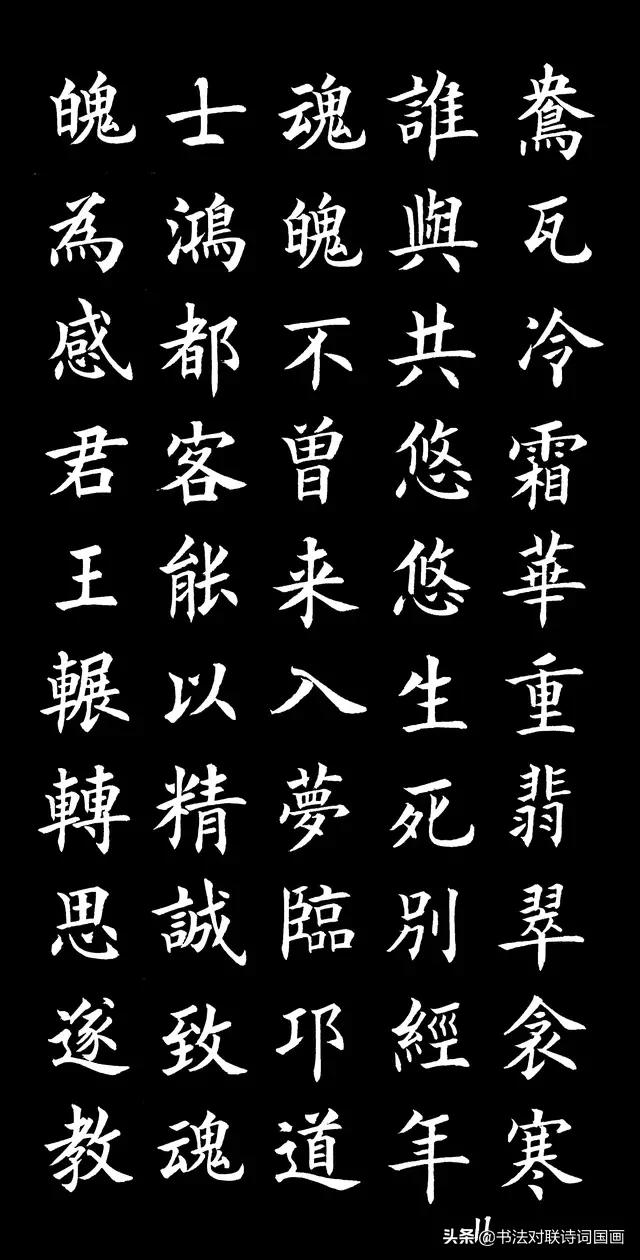 鴦瓦冷霜華重翡翠衾寒
誰與共悠悠生死別經年
魂魄不曾来入夢臨邛道
士鴻都客能以精誠致魂
魄為感君王輾轉思遂教
11
头条 @书法对联诗词国画